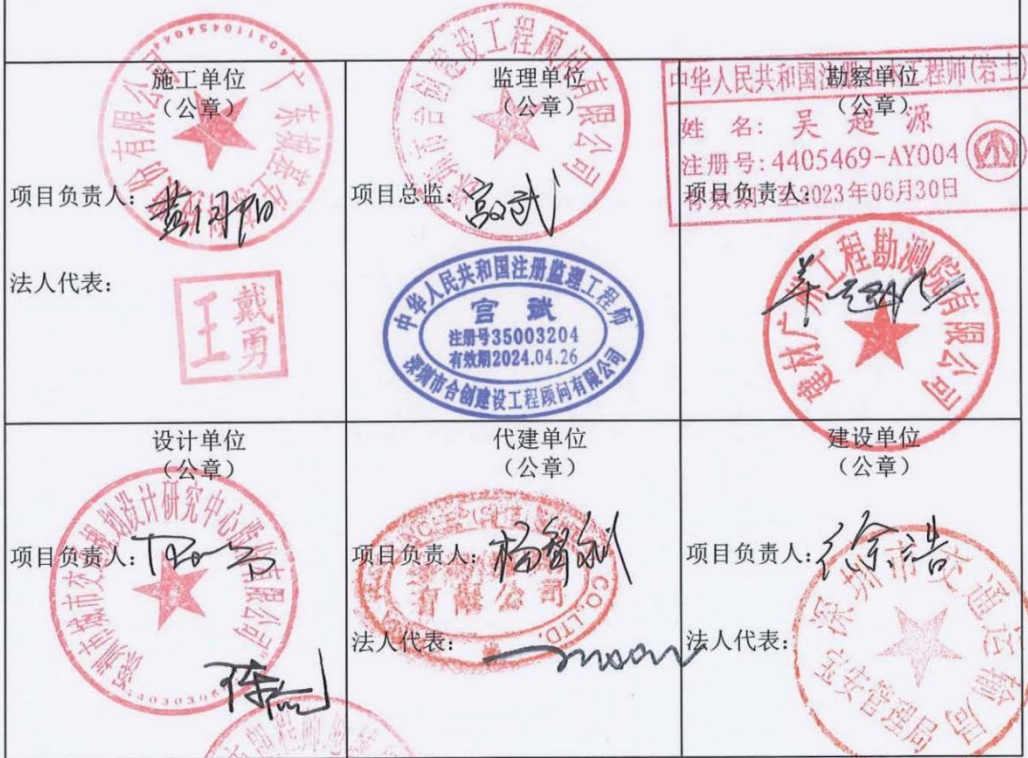 施工单位
（公章）
项目负责人：
法人代表：
戴勇
王
监理单位
（公章）
深圳市合创建设工程顾问有限公司
项目总监：
宫斌
中华人民共和国注册监理工程师
宫斌
注册号35003204
有效期2024.04.26
深圳市合创建设工程顾问有限公司
勘察单位
（公章）
中华人民共和国注册土木工程师(岩土)
姓 名: 吴超源
注册号:4405469-AY004
有效期 至2023年06月30日
项目负责人:
建材广州工程勘测院有限公司
设计单位
（公章）
项目负责人：
代建单位
（公章）
项目负责人：
有限公司
CO.,LTD.
法人代表：
建设单位
（公章）
项目负责人：
徐浩
法人代表：
深圳市交通运输局
宝安管理局